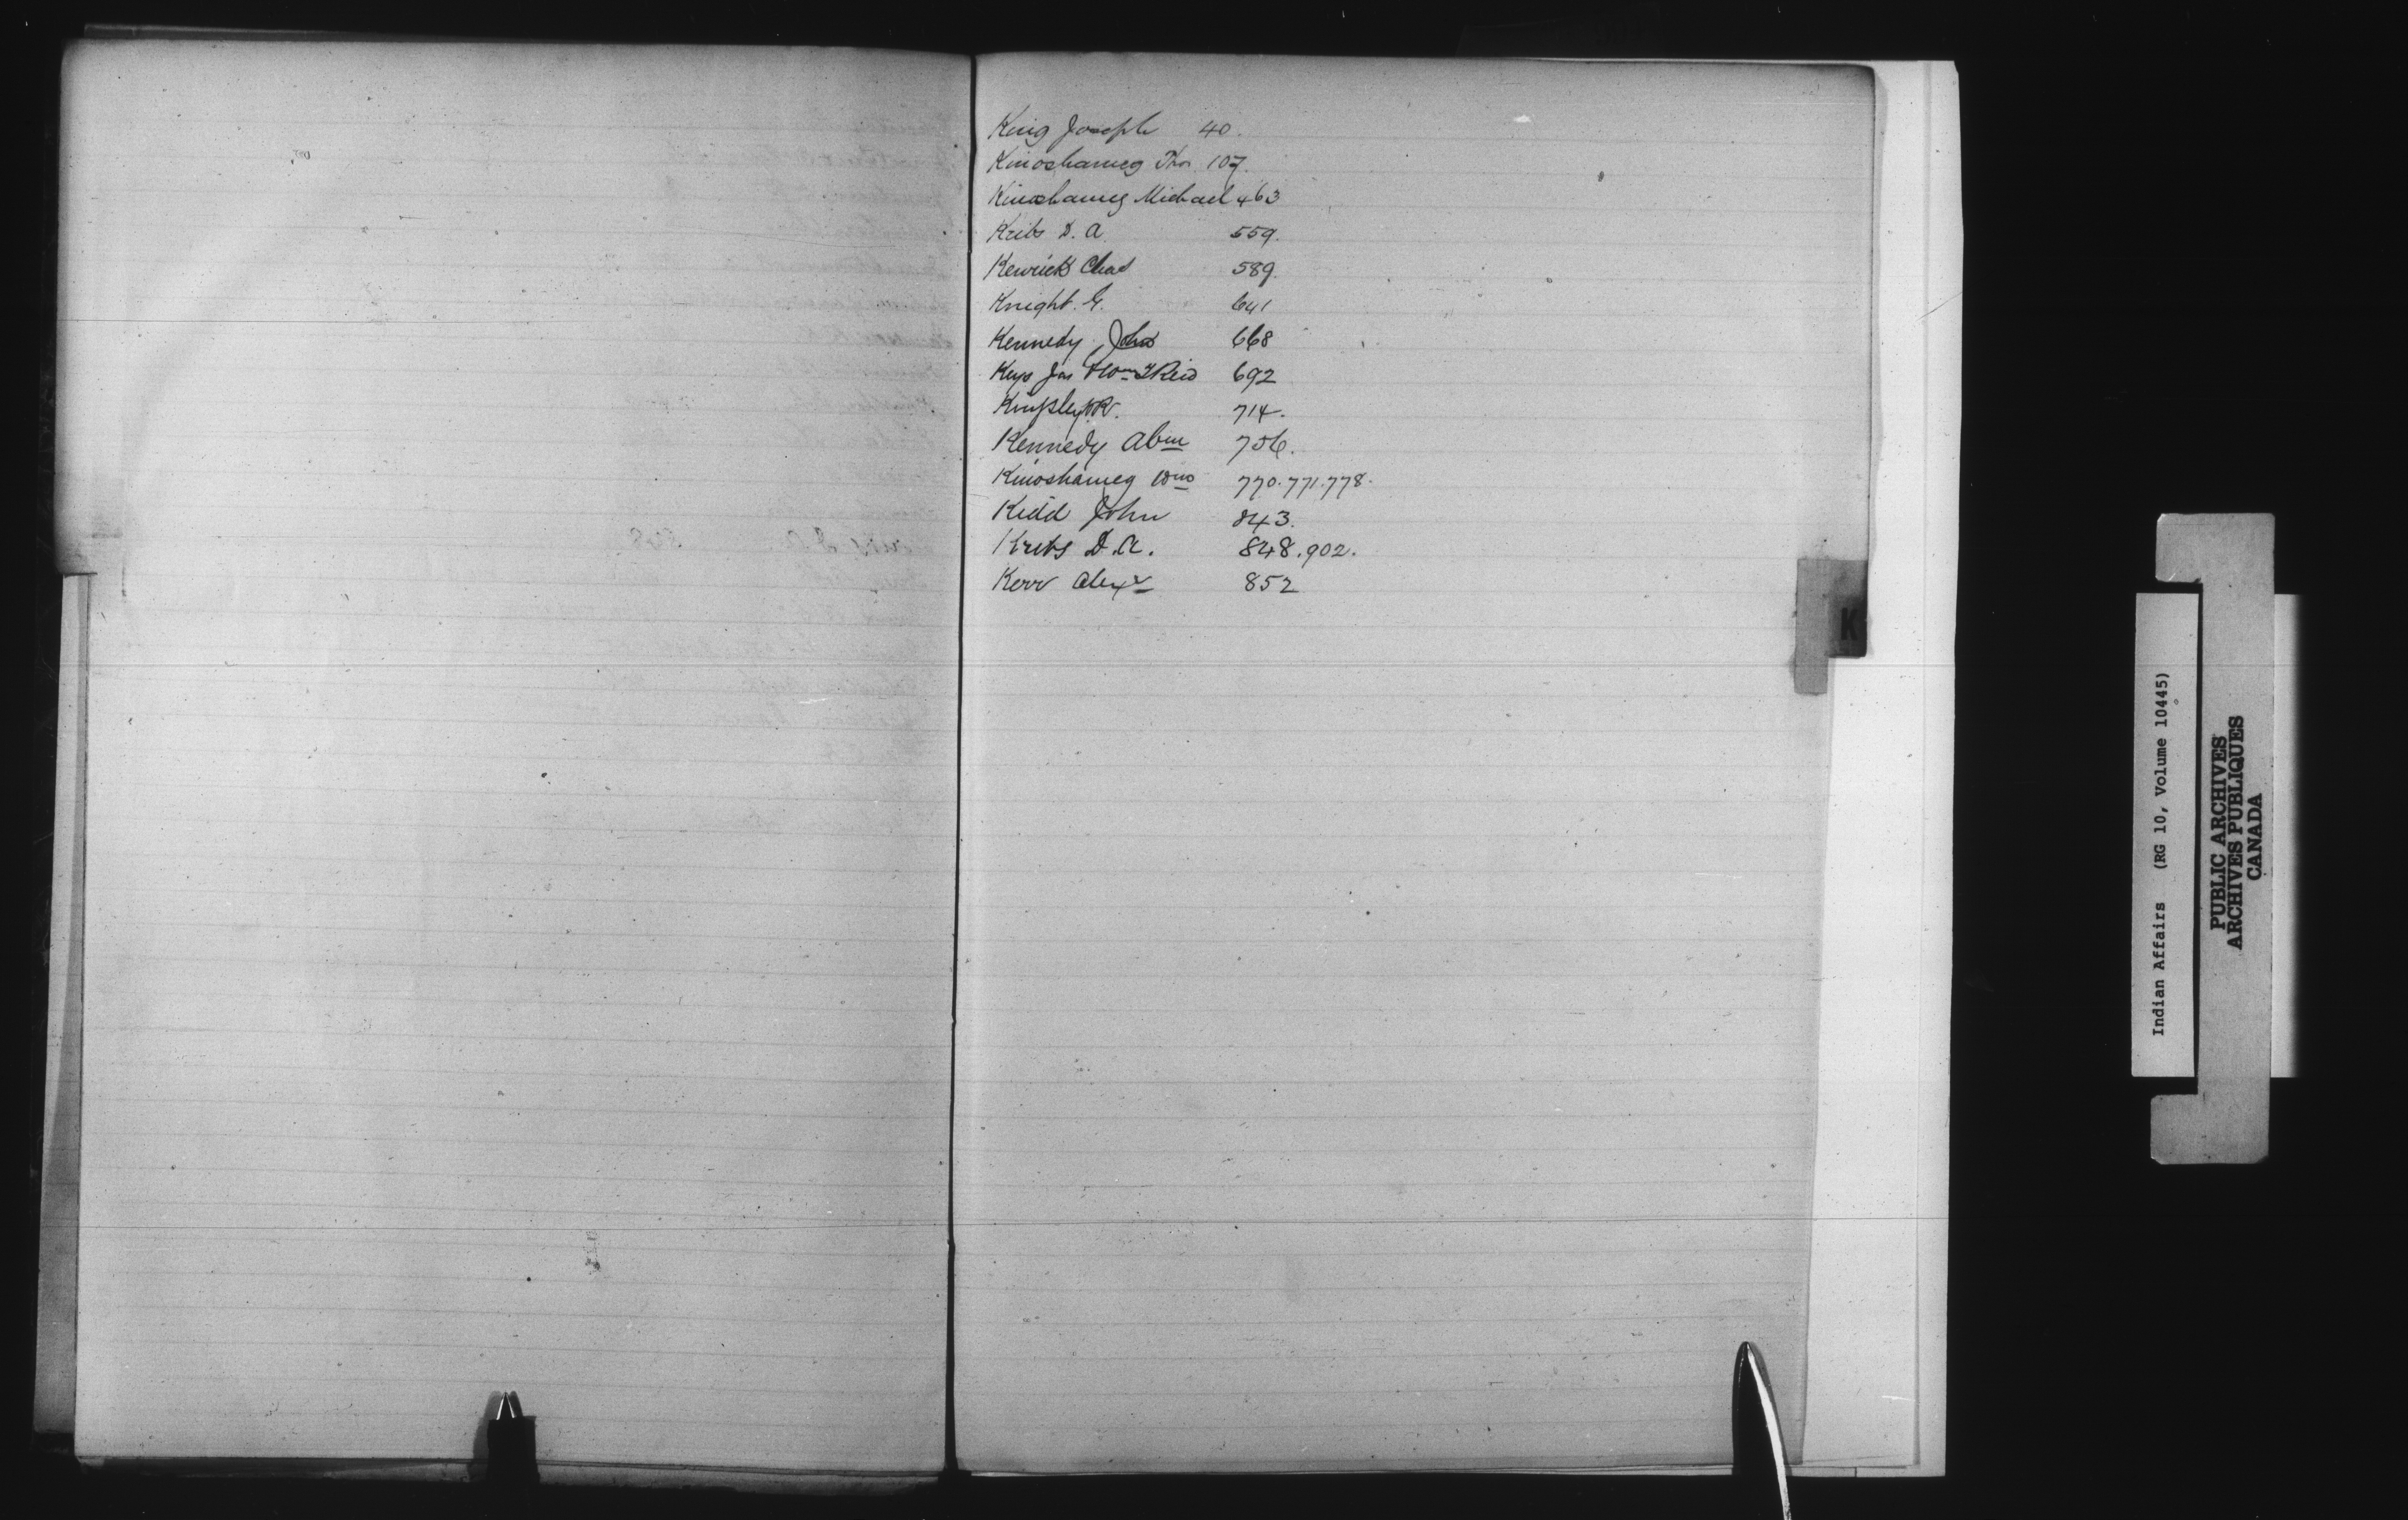 King Joseph 40.
Kinoshameg Thos 107.
Kinoshameg Michael 463
Kribs D. A. 559.
Kenrick Chas 589.
Knight. G. 641
Kennedy, John 668
Keys Jas & Wm Reid 692
714.
Kennedy Abm 756.
Kinoshameg Wm 770.771.778.
Kidd John 843.
Kribs D.A. 848.902.
Kerr Alexr 852
K
Indian Affairs (RG 10, Volume 10445)
PUBLIC ARCHIVES
ARCHIVES PUBLIQUES
CANADA